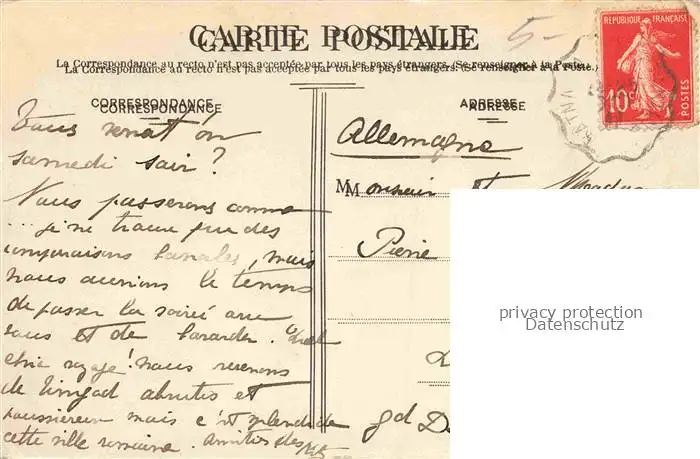 CARTE POSTALE
La Correspondance au recto n'est pas acceptée par tous les pays étrangers. (Se renseigner à la Poste.)
CORRESPONDANCE
Vous
samedi soir ?
Nous passerons comme
... je ne trouve que des
comparaisons banales, mais
nous aurions le temps
de passer la soirée avec
vous et de bavarder. Quel
chic voyage! nous revenons
de Timgad abrutis et
poussiéreux mais c'est splendide
cette ville romaine. Amitiés des
ADRESSE
Allemagne
Monsieur et
Pierre
gd
5-
REPUBLIQUE FRANÇAISE
10c
POSTES
privacy protection
Datenschutz